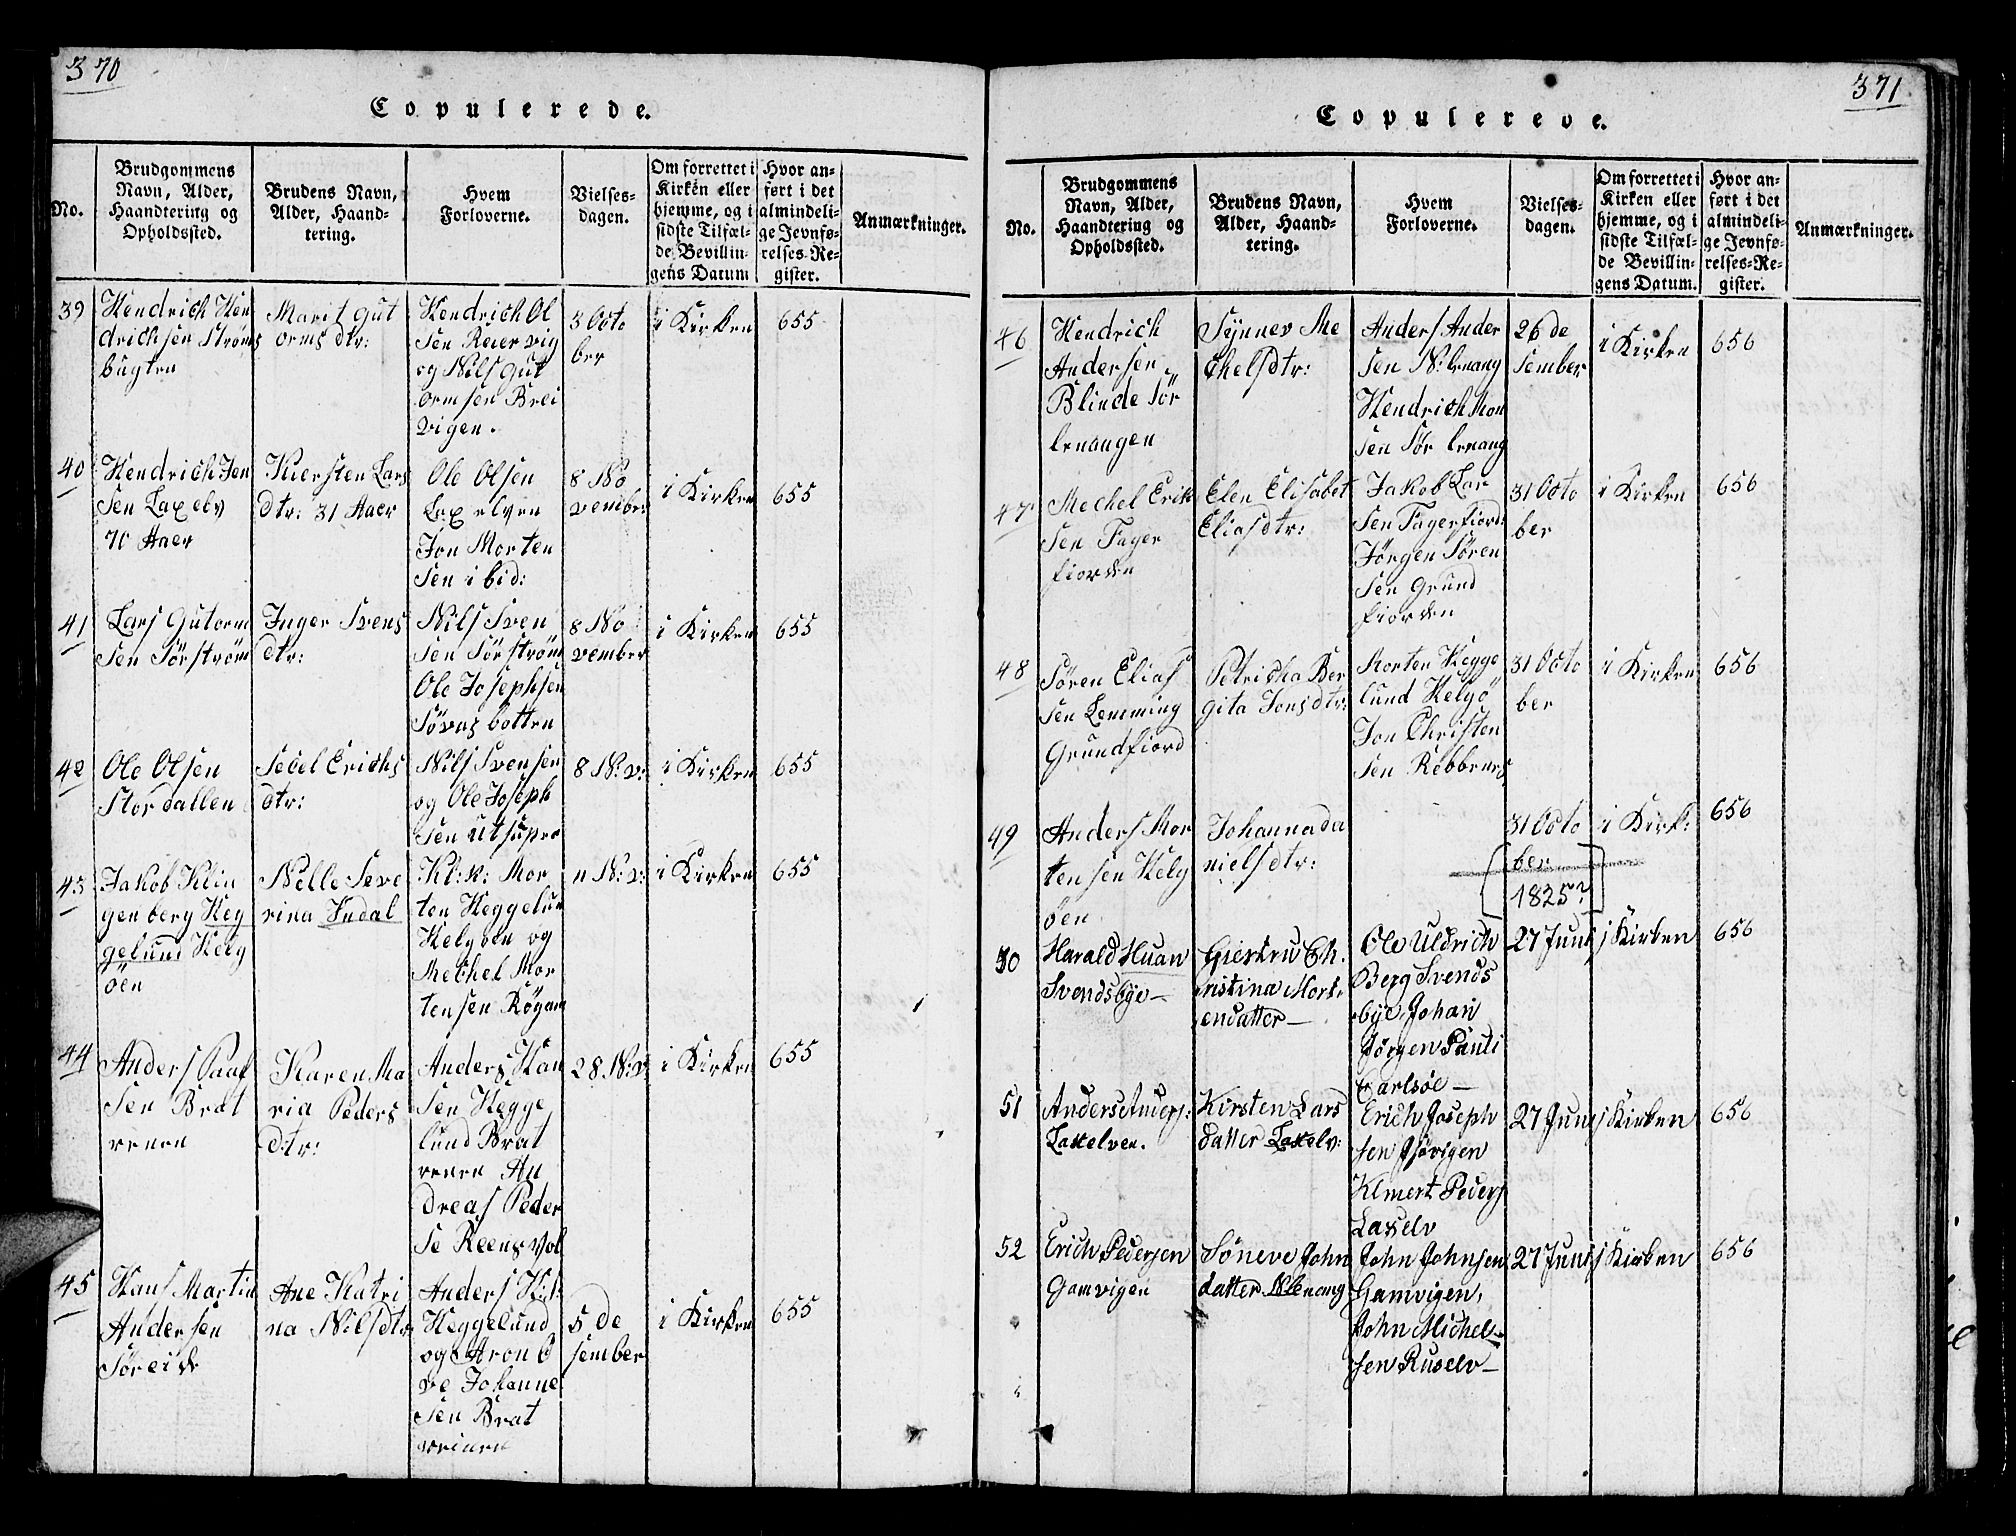 370
Copulerede.
No.
Brudgommens
Navn, Alder,
Haandtering og
Opholdssted.
Brudens Navn,
Alder, Haand-
tering.
Hvem
Forloverne.
Vielses-
dagen.
Om forrettet i
Kirken eller
hjemme, og i
sidste Tilfæl-
de Bevillin-
gens Datum
Hvor an-
ført i det
almindeli-
ge Jevnfø-
relses-Re-
gister.
Anmærkninger.
39
Hendrich Hen
drichsen Strøms
bugten
Marit Gut
orms dtr:
Hendrich Ol
sen Reiervig
og Nils Gut
ormsen Brei
vigen.
3 Octo
ber
i Kirken
655
40
Hendrich Jen
sen Laxelv
70 Aaer
Kiersten Lars
dtr: 31 Aaer
Ole Olsen
Laxelven
Jon Morten
sen ibid:
8 No
vember
i Kirken
655
41
Lars Gutorm
sen Sørstrøm
Inger Svens
dtr:
Nils Sven
sen Sørstrøm
Ole Josephsen
Søvasbotten
8 No
vember
i Kirken
655
42
Ole Olsen
Stordallen
Sebel Erichs
dtr:
Nils Svensen
og Ole Joseph
sen ut supra
8 N:v:
i Kirken
655
43
Jakob Klin
genberg Heg
gelund Helg
øen
Nelle Seve
rina Indal
Kl:k: Mor
ten Heggelun
Helgøen og
Mechel Mor
tensen
11 N:v:
i Kirken
655
44
Anders Paaf
sen Brat
renen
Karen Ma
ria Peders
dtr:
Anders Han
sen Hegge
lund Brat
renen An
dreas Peder
se Reensvol
28 N:v.
i Kirken
655
45
Hans Martin
Andersen
Søreide
Ane Katri
na Nilsdtr
Anders H:l:
Heggelund
og Aron O
ve Johanne
sen Brat
5 de
sember
i Kirken
655
371
Copulerede.
No.
Brudgommens
Navn, Alder,
Haandtering og
Opholdssted.
Brudens Navn,
Alder, Haand-
tering.
Hvem
Forloverne.
Vielses-
dagen.
Om forrettet i
Kirken eller
hjemme, og i
sidste Tilfæl-
de Bevillin-
gens Datum.
Hvor an-
ført i det
almindeli-
ge Jevnfø-
relses-Re-
gister.
Anmærkninger.
46
Hendrich
Andersen
Blinde Sør
lenangen
Synnev Me
chelsdtr:
Anders Ander
sen N:lenang
Hendrich Mon
sen Sør lenang
26 de
sember
i Kirken
656
47
Mechel Erik
sen Fager
fiorden
Elen Elisabet
Eliasdtr:
Jakob Lar
sen Fagerfiord:
Jørgen Søren
sen Grund
fiorden
31 Octo
ber
i Kirken
656
48
Søren Elias
sen Lemming
Grundfiord
Petricha Ber
gita Jonsdtr:
Morten Hegge
lund Helgö
Jon Christen
sen Rebbenes
31 Octo
ber
i Kirken
656
49
Anders Mor
tensen Helg
øen
Johanna da
nielsdtr:
31 Octo
ber
1825?
i Kirk:
656
50
Harald Huan
Svendsbye-
Giertru Ch.
ristina Mort.
endatter-
Ole Uldrich
Berg Svends
bye, Johan
Jørgen Pauli
Carlsøe-
27 Juni
i Kirken
656
51
Anders Anders:
Laxelven.
Kirsten Lars
datter Laxelv:
Erich Joseph
sen
Klmert Peders
Laxelv
27 Juni
i Kirken
656
52
Erich Pedersen
Gamvigen
Søneve John
datter Nlenang
John Johnsen
Gamvigen,
John Michel-
sen Ruselv-
27 Juni
i Kirken
656